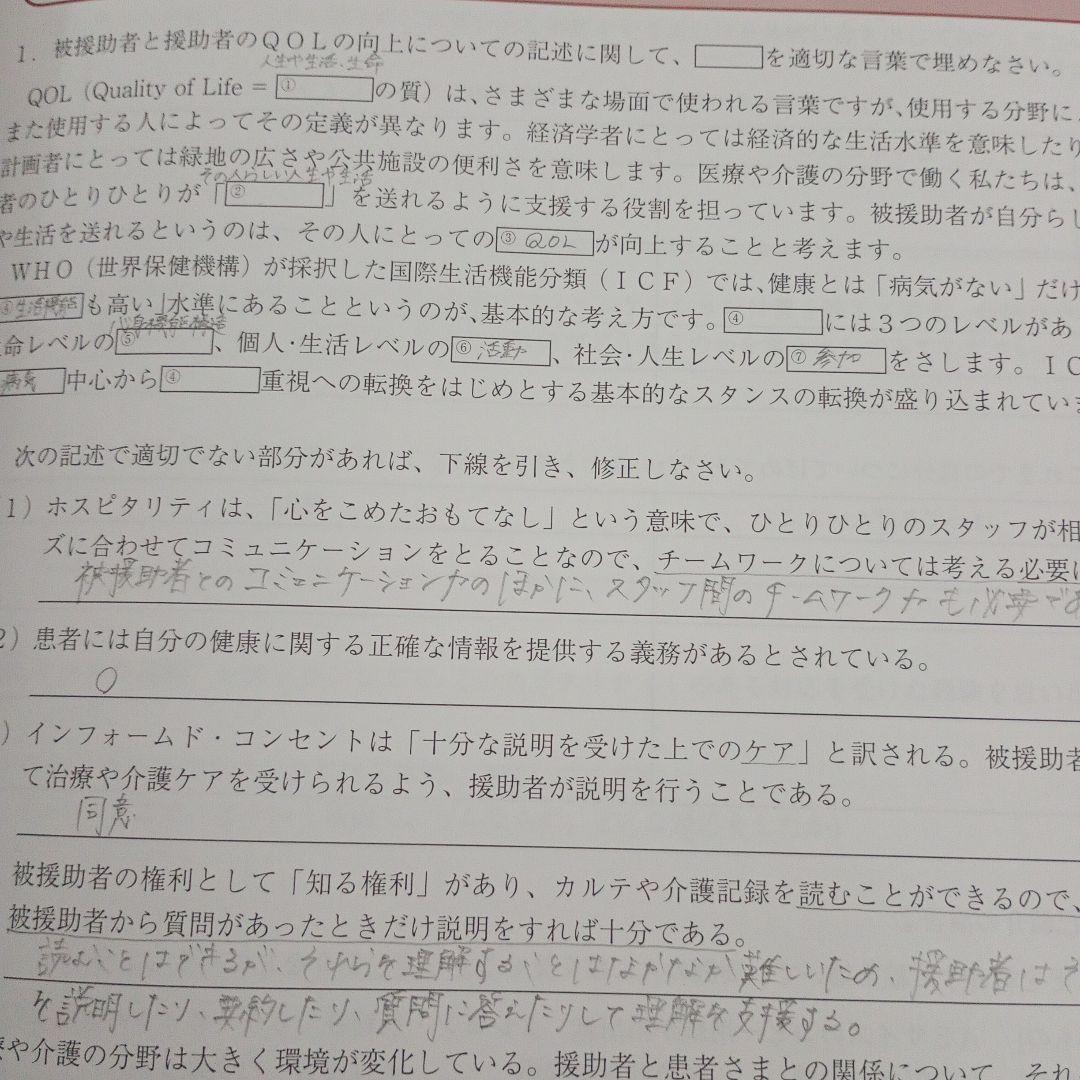 1. 被援助者と援助者のＱＯＬの向上についての記述に関して、を適切な言葉で埋めなさい。
人生や生活、生命
QOL（Quality of Life＝①の質）は、さまざまな場面で使われる言葉ですが、使用する分野に
また使用する人によってその定義が異なります。経済学者にとっては経済的な生活水準を意味したり
計画者にとっては緑地の広さや公共施設の便利さを意味します。医療や介護の分野で働く私たちは、
その人らしい人生や生活
者のひとりひとりが「②」を送れるように支援する役割を担っています。被援助者が自分らし
や生活を送れるというのは、その人にとっての③QOLが向上することと考えます。
WHO（世界保健機構）が採択した国際生活機能分類（ＩＣＦ）では、健康とは「病気がない」だけ
④生活機能も高い」水準にあることというのが、基本的な考え方です。④には３つのレベルがあ
心身機能構造
命レベルの⑤、個人・生活レベルの⑥活動、社会・人生レベルの⑦参加をさします。ＩＣ
病気中心から④重視への転換をはじめとする基本的なスタンスの転換が盛り込まれていま
次の記述で適切でない部分があれば、下線を引き、修正しなさい。
1）ホスピタリティは、「心をこめたおもてなし」という意味で、ひとりひとりのスタッフが相
ズに合わせてコミュニケーションをとることなので、チームワークについては考える必要は
被援助者とのコミュニケーション力のほかに、スタッフ間のチームワーク力も必要であ
2）患者には自分の健康に関する正確な情報を提供する義務があるとされている。
○
）インフォームド・コンセントは「十分な説明を受けた上でのケア」と訳される。被援助者
て治療や介護ケアを受けられるよう、援助者が説明を行うことである。
同意
被援助者の権利として「知る権利」があり、カルテや介護記録を読むことができるので、
被援助者から質問があったときだけ説明をすれば十分である。
読むことはできるが、それらを理解することはなかなか難しいため、援助者はそ
を説明したり、要約したり、質問に答えたりして理解を支援する。
や介護の分野は大きく環境が変化している。援助者と患者さまとの関係について、それ